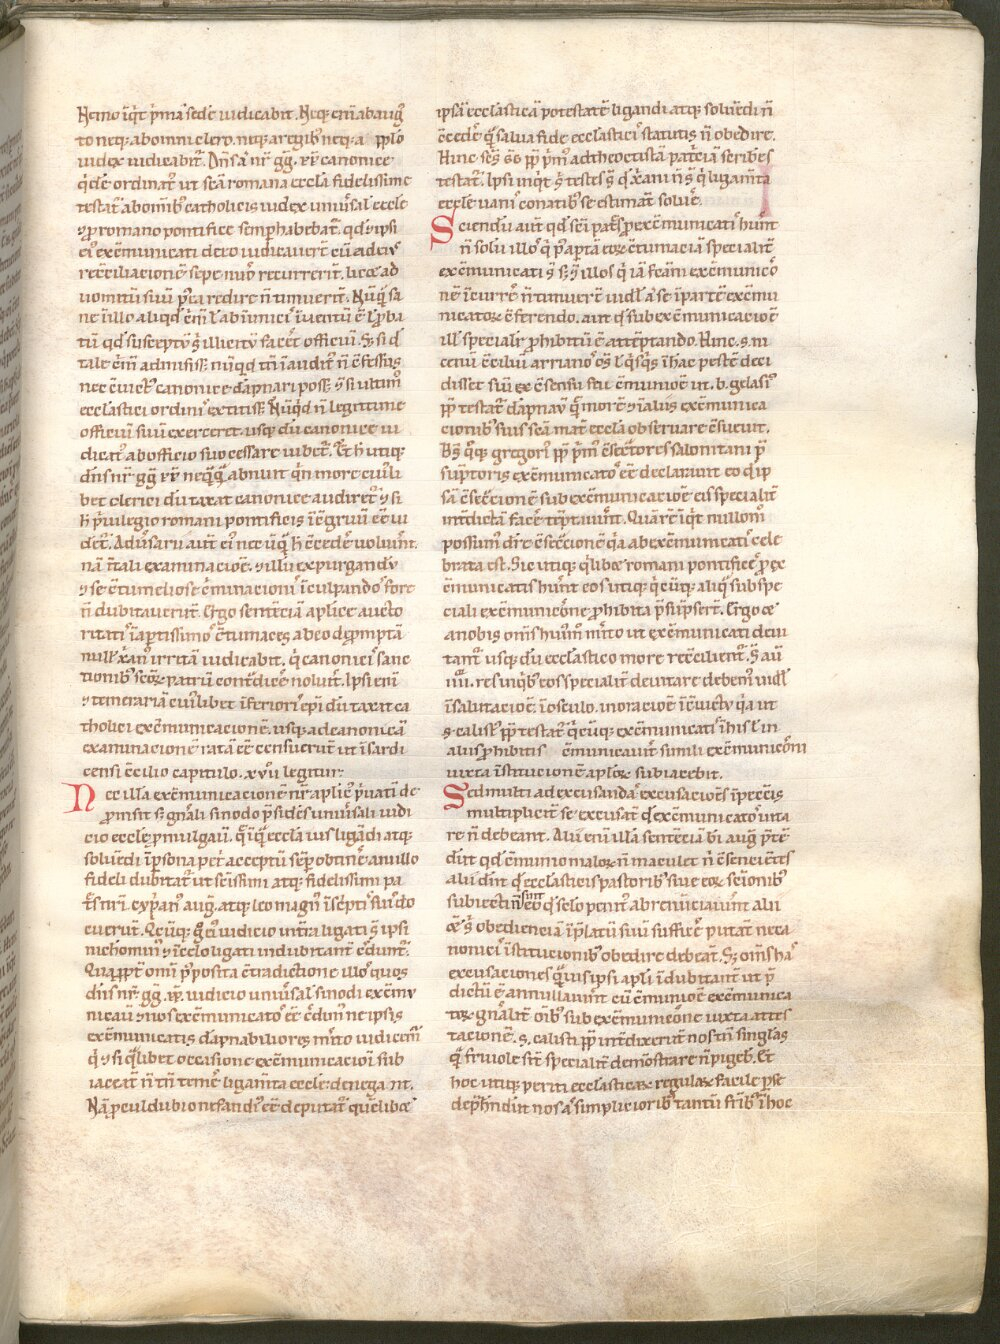 Nemo īqͥt p̄ma sedē iudicabit. Neq; eni ab aug᷒
to neq; ab omni clero. neq; a regib᷒ neq; a pplo
iudex iudicabit᷑. Dn̄s aū nr̄ gg. vij canonice
qͥdē ordinat᷒ ut sc̄a romana eccl̄a fidelissime
testat᷑ ab omīb᷒ catholicis iudex uniu᷑sal᷒ eccl̄e
⁊ p romano pontifice semp habebat᷑. qd ⁊ ipsi
ei᷒ excōmunicati de eo iudicauerūt cū ad ei᷒
recōciliacionē sepenūo recurrerīt. licet ad
uomitū suū postea redire ñ timuerīt. Nūqͥd sā
ne ī illo aliqd c̄mī l̓ ab inimicis īuentū ē l̓ p̄ba
tū qd susceptū gͥ illicitū facēt officiū. S; si qd
tale c̄mī admisiss; nūqͥd tn̄ īauditus ñ cfessus
nec cuict᷒ canonice dāpnari poss; ⁊ si ultimi
eccl̄astici ordinis extitiss; Nūqͥd ñ legitime
officiū suū exerceret. usq; dū canonice iu
dicat᷒ ab officio suo cessare iubet᷑. Et h utiq;
dn̄s nr̄ gg vij neqͣqͣ abnuit qͥn more cui᷒li
bet clerici dū taxat canonice audiret᷑ ⁊ si
h p̄uilegio romani pontificis īcōgruū eē ui
det᷑. Aduersarii aūt ei᷒ nec ūqͣ h cēcedē uoluīnt.
nā ñ tali examinacioē. ⁊ illū expurgandū
⁊ se cōtumeliose c̄minacionis ī culpando fore
ñ dubitauerūt. Ergo sentēciā aplice aucto
ritatis ī aptissimos cōtumaces ab eo dep̄mptā
null᷒ xānus irritā iudicabit. qͣ canonici sanc
tionib᷒ sc̄oꝝ patrū cont̄dicē noluīt. Ipsi enī
⁊ temerariā cui᷒libet īferioris ep̄i dū taxat ca
tholici excōmunicacionē. usq; ad canonicā
examinacionē ratā eē censuerūt ut ī sardi
censi cōcilio capitulo. xvii legitur:
Nec illa excōmunicacionē nr̄i aplici p̄uati de
p̄msit s; gn̄ali sinodo p̄sidēs uniu᷑sali iudi
cio eccl̄e p̄mulgauit. qͣ īqͣ eccl̄a ius ligādi atq;
soluēdi ī psona pet᷑ acceptū semp obtinē. a nullo
fideli dubitat᷑ ut sc̄issimi atq; fidelissimi pa
tres nr̄i cyprian᷒ aug᷒. atq; leo magn᷒ ī septis suis do
cuerūt. Qͥcūq; gͦ ei᷒ iudicio intra ligati s ipsi
nichominus ⁊ ī celo ligati indubitant᷑ c̄dunt᷑.
Quapp̄t omī p̄posita cōtradictione illos quos
dn̄s nr̄. gg. vij. iudicio uniu᷑sal᷒ sinodi excōmu
nicauit ⁊ nos excōmunicatos eē c̄dim᷒ nec ipsis
excōmunicatis dāpnabiliores m̄ito iudicam᷒
qͥ ⁊ si qͣlibet occasione excōmunicacioni sub
iaceāt ñ tn̄ temē ligam̄ta eccl̄e denegant.
Nā p̄cul dubio nefandi᷒ eē deputat᷑ quēlibet
ipsā eccl̄asticā potestatē ligandi atq; soluēdi ñ
cēcedē qͣ salua fide eccl̄asticis statutis ñ obedire.
Hinc ses̄ go pp p̄m᷒ ad theoctistā patciā scribēs
testat᷑. Ipsi inqͥt s testes s qͥ xāni ñ s qͥ ligam̄ta
eccl̄e uanis conatib᷒ se estimāt soluē.
Sciendū aūt qd sc̄i patres p excōmunicatis huīnt
ñ solū illos qͥ p aptā eoꝝ cōtumaciā specialit᷑
excōmunicati s s; ⁊ illos qͥ iā fcām excōmunicō
nē īcurrē ñ timuerūt uidl̓ a se ī partē excōmu
nicatoꝝ cferendo. aut qd sub excōmunicacioē
ill᷒ specialit᷑ p̄hibitū ē attēptando. Hinc. s. ni
cenū cciliū arrianos oēs l̓ qͥsqͥs ī hac peste deci
disset suū ex csensu seu cōmunioē ut. b. gelasi᷒
pp testat᷑ dāpnauit qͣ morē ⁊ ī aliis excōmunica
cionib᷒ suis sc̄a mat̄ eccl̄a obseruare csueuit.
Bs̄ qͦq; gregori᷒ pp p̄m᷒ csecratores salonitani p̄
suptoris excōmunicatos eē declarauit eo qd ip
sā csecrcionē sub excōmunicacioē eis specialit᷑
int̄dictā facē tēptauīnt. Quā rē īqͥt nullom᷒
possum᷒ dic̄e csecrcionē qͥa ab excōmunicatis cele
brata est. Sic utiq; qͥlibet romani pontifices p ex
cōmunicatis huīnt eos utiq; qͥcūq; aliqͣ sub spe
ciali excōmunicōne p̄hibita p̄supserīt. Ergo &
a nobis om̄s huiusmodi m̄ito ut excōmunicati deui
tant᷑ usq; dū eccl̄astico more recōcilient᷑. S aū
iiii. res in qͥb᷒ eos specialit᷑ deuitare debem᷒ uidl̓
ī salutacioē. ī osculo. in oracioē ī cuictu qͥa ut
s calist᷒ pp testat᷑ qͥcūq; excōmunicatis ī his l̓ in
aliis p̄hibitis cōmunicauīt simili excōmunicōni
iuxta īstitucionē aploꝝ subiacebit.
Sed multi ad excusandas excusacioēs ī peccis
multiplicit᷑ se excusāt qd excōmunicatos uita
re ñ debeant. Alii enī illā sentēciā bi aug᷒ p̄tē
dūt qd cōmunio maloꝝ ñ maculet ñ csencientes
alii dīnt qd eccl̄asticis pastorib᷒ siue eoꝝ scionib᷒
subiecti ñ sint eo qd sclo penit᷒ abrenunciauīnt alii
& s; obedienciā ī p̄latū suū sufficē putāt nec a
nonicis īstitucionib᷒ obedire debeāt. S; om̄s has
excusaciones qͣuis ipsi apli īdubitanter ut p̄
dictū ē annullauīnt cū cōmunioē excōmunica
toꝝ gn̄alit᷑ oīb᷒ sub excōmunicōne iuxta attes
tacionē. s. calisti pp intdixerūt nos tn̄ singlas
qͣ friuole sint specialit᷑ demōstrare ñ pigeb᷑. Et
hoc utiq; periti eccl̄asticaꝝ regulaꝝ facile p se
dep̄hendūt nos aūt simplicioribus tantū fr̄ib᷒ ī hoc